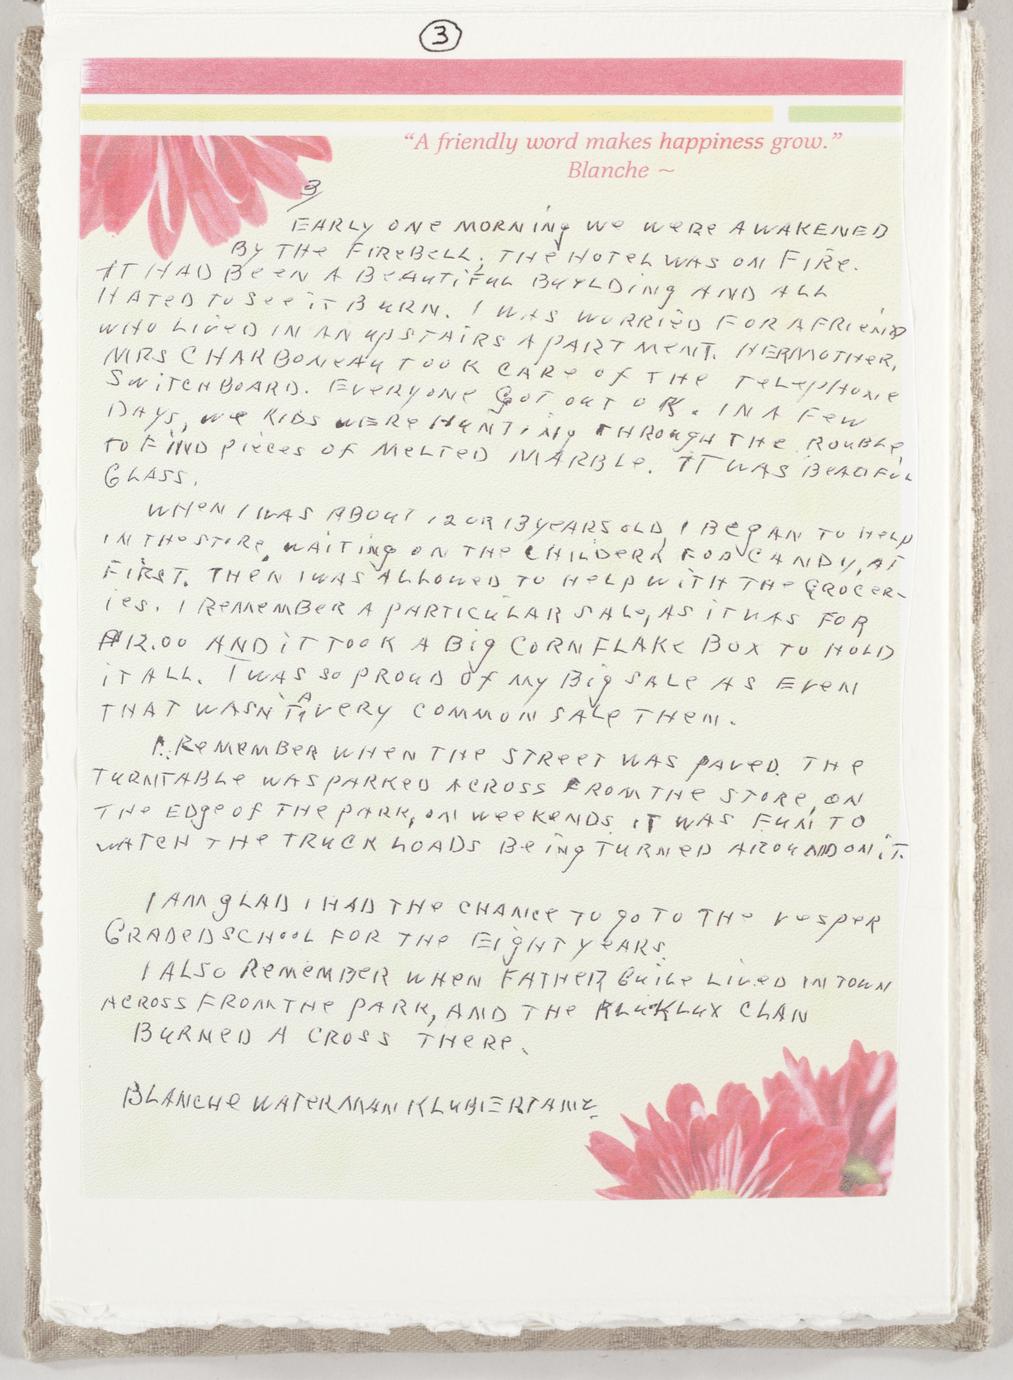 3
“A friendly word makes happiness grow.”
Blanche ~
3
EARLY ONE MORNING WE WERE AWAKENED
BY THE FIREBELL, THE HOTEL WAS ON FIRE.
IT HAD BEEN A BEAUTIFUL BUYLDING AND ALL
HATED TO SEE IT BURN. I WAS WORRIED FOR A FRIEND
WHO LIVED IN AN UPSTAIRS APARTMENT. HER MOTHER,
MRS CHARBONEAU TOOK CARE OF THE TELEPHONE
SWITCHBOARD. EVERYONE GOT OUT OK. IN A FEW
DAYS, WE KIDS WERE HUNTING THROUGH THE ROUBLE,
TO FIND PIECES OF MELTED MARBLE. IT WAS BEAUFUL
GLASS.
WHEN I WAS ABOUT 12 OR 13 YEARS OLD, I BEGAN TO HELP
IN THE STORE, WAITING ON THE CHILDERN FOR CANDY, AT
FIRST. THEN I WAS ALLOWED TO HELP WITH THE GROCER-
IES. I REMEMBER A PARTICULAR SALE, AS IT WAS FOR
$12.00 AND IT TOOK A BIG CORNFLAKE BOX TO HOLD
IT ALL. I WAS SO PROUD OF MY BIG SALE AS EVEN
THAT WASN'T A VERY COMMON SALE THEN.
I REMEMBER WHEN THE STREET WAS PAVED. THE
TURNTABLE WAS PARKED ACROSS FROM THE STORE, ON
THE EDGE OF THE PARK, ON WEEKENDS IT WAS FUN TO
WATCH THE TRUCK LOADS BEING TURNED AROUND ON IT.
I AM GLAD I HAD THE CHANCE TO GO TO THE VESPER
GRADED SCHOOL FOR THE EIGHT YEARS.
I ALSO REMEMBER WHEN FATHER LIVED IN TOWN
ACROSS FROM THE PARK, AND THE KLUKLUX CLAN
BURNED A CROSS THERE.
BLANCHE WATERMAN KLUBIERTANZ